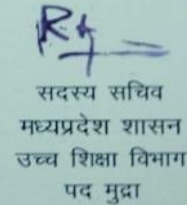 सदस्य सचिव
मध्यप्रदेश शासन
उच्च शिक्षा विभाग
पद मुद्रा